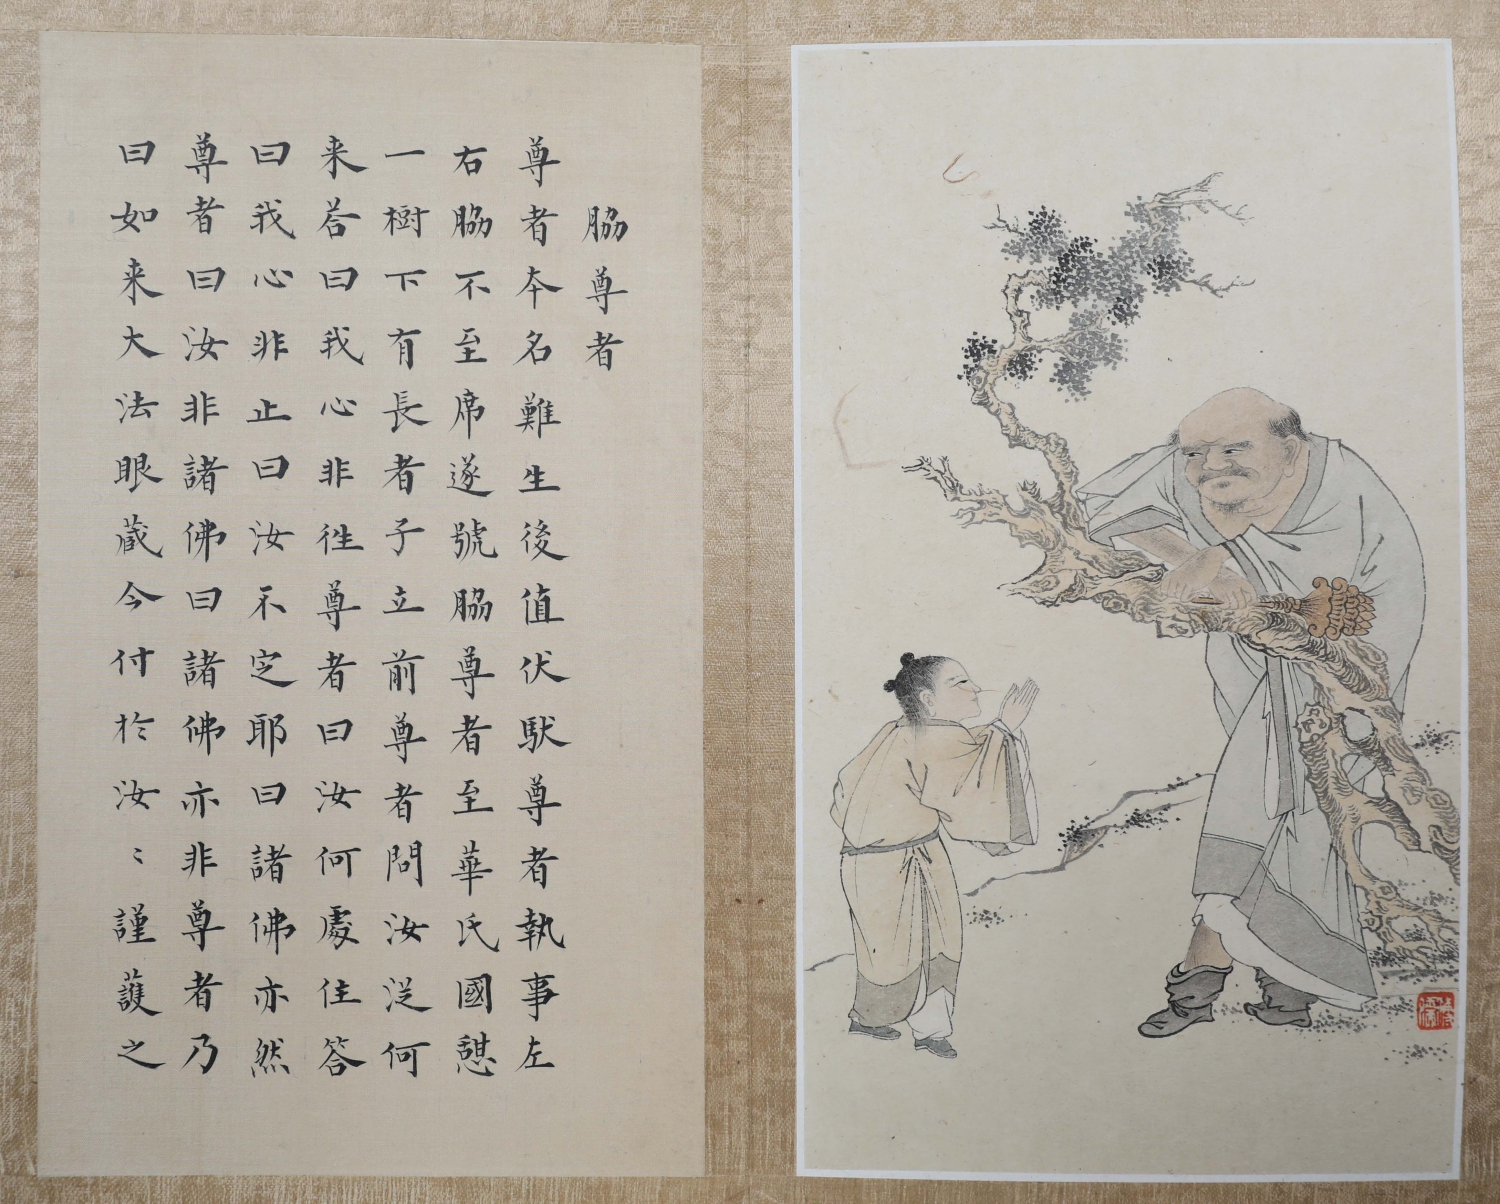 脇尊者
尊者本名難生後值伏馱尊者執事左
右脇不至席遂號脇尊者至華氏國憇
一樹下有長者子立前尊者問汝從何
来荅曰我心非徃尊者曰汝何處住答
曰我心非止曰汝不定耶曰諸佛亦然
尊者曰汝非諸佛曰諸佛亦非尊者乃
曰如来大法眼蔵今付於汝〻謹護之